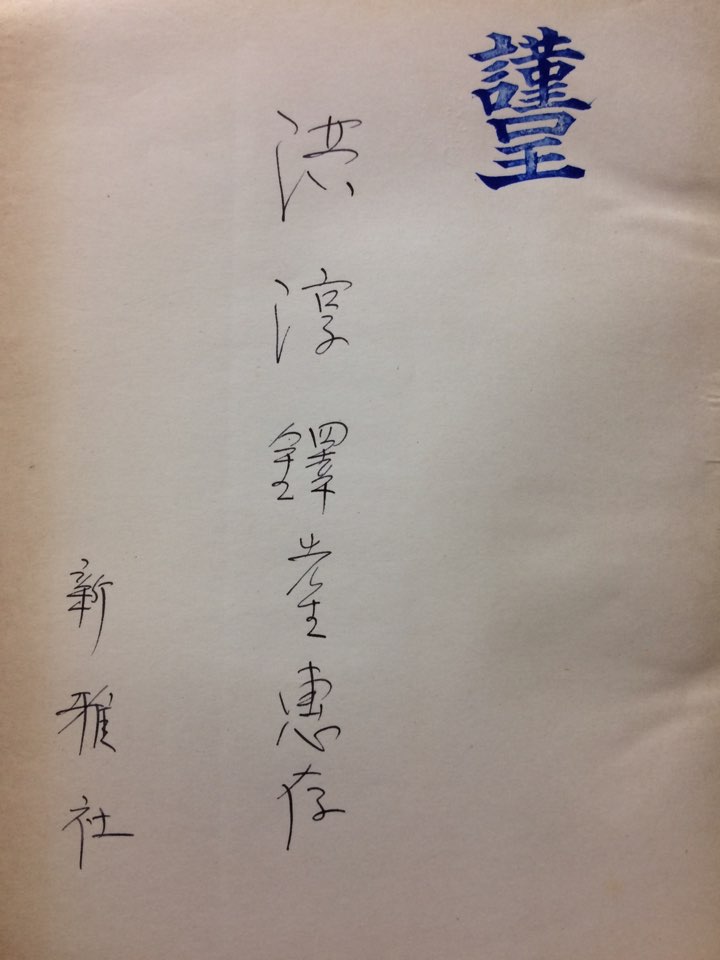 謹呈
洪淳鐸先生惠存
新雅社